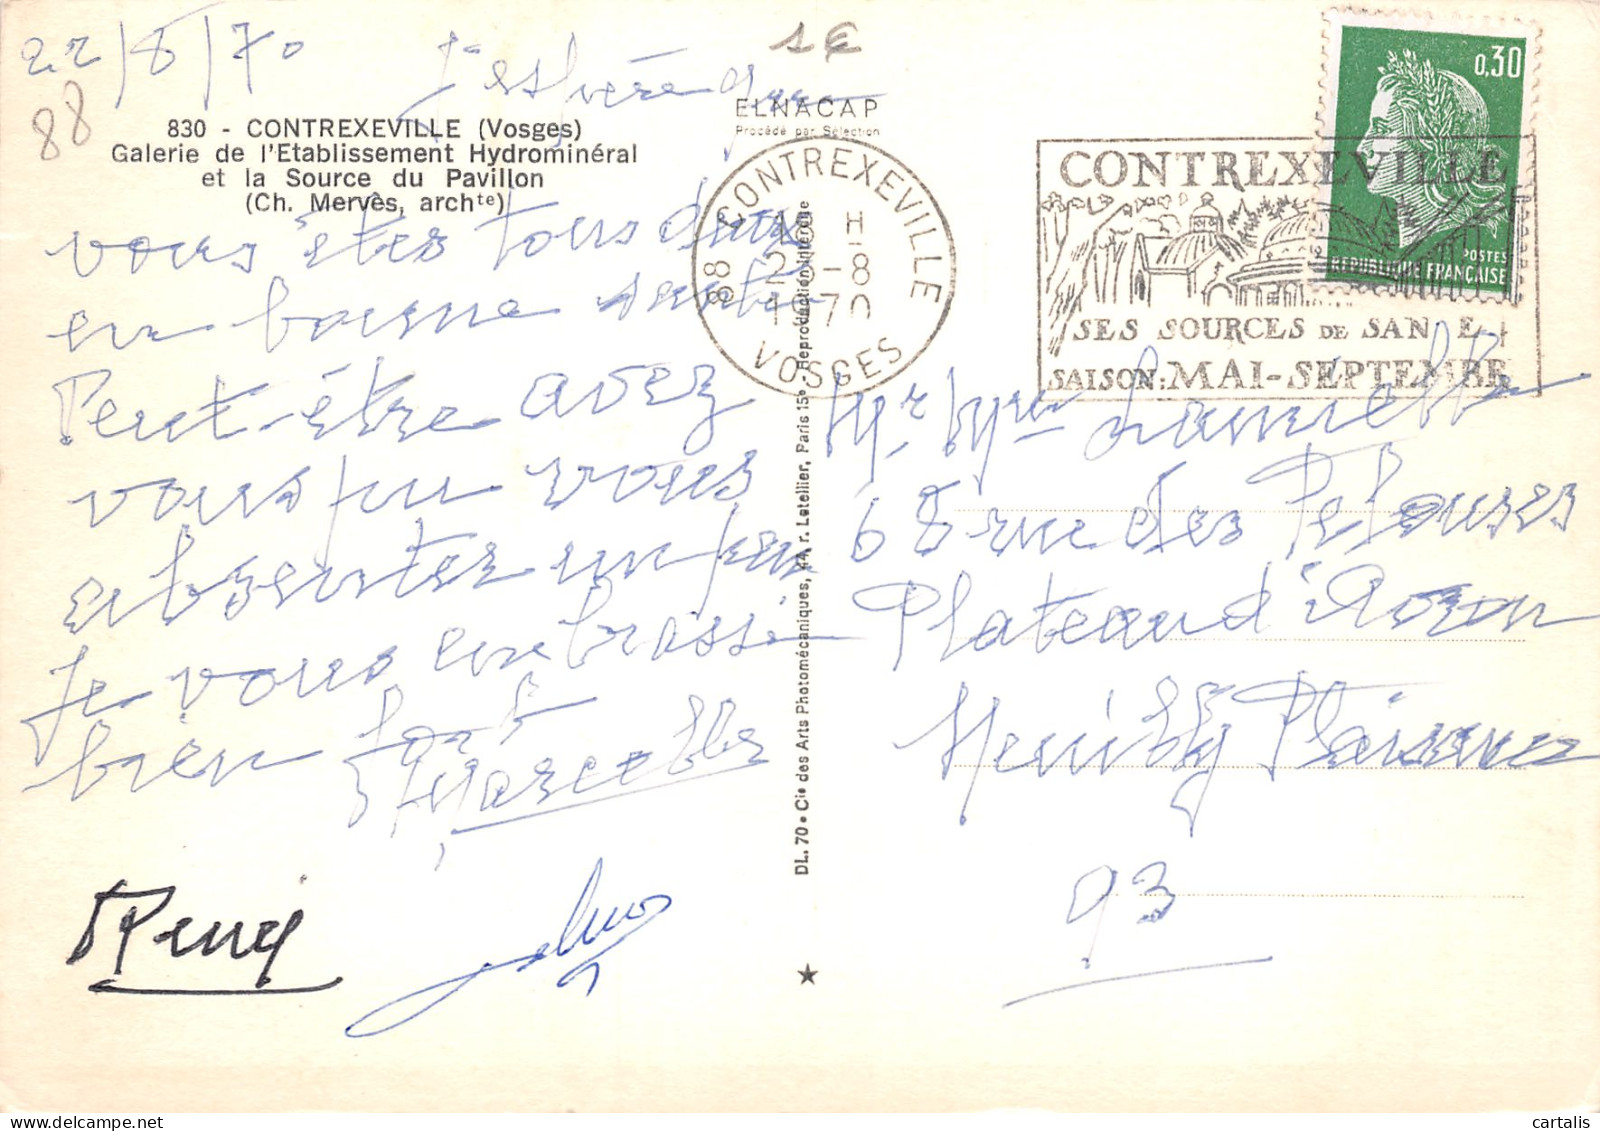 22/8/70
1€
88
J'espère que
830 - CONTREXEVILLE (Vosges)
Galerie de l'Etablissement Hydrominéral
et la Source du Pavillon
(Ch. Mervès, archte)
ELNACAP
Procédé par Sélection
vous êtes tous deux
en bonne santé
Peut-être avez
vous pu vous
absenter un peu
Je vous embrasse
bien fort
Marcelle
Remy
DL. 70 • Cie des Arts Photomécaniques, 44, r. Letellier, Paris 15e - Reproduction interdite
88 CONTREXEVILLE
18 H
-8
1970
VOSGES
CONTREXEVILLE
SES SOURCES DE SANTE
SAISON: MAI-SEPTEMBRE
0,30
POSTES
REPUBLIQUE FRANÇAISE
Mr Mme
68 rue des Pelouses
Plateau d'Avron
Neuilly Plaisance
93
cartalis